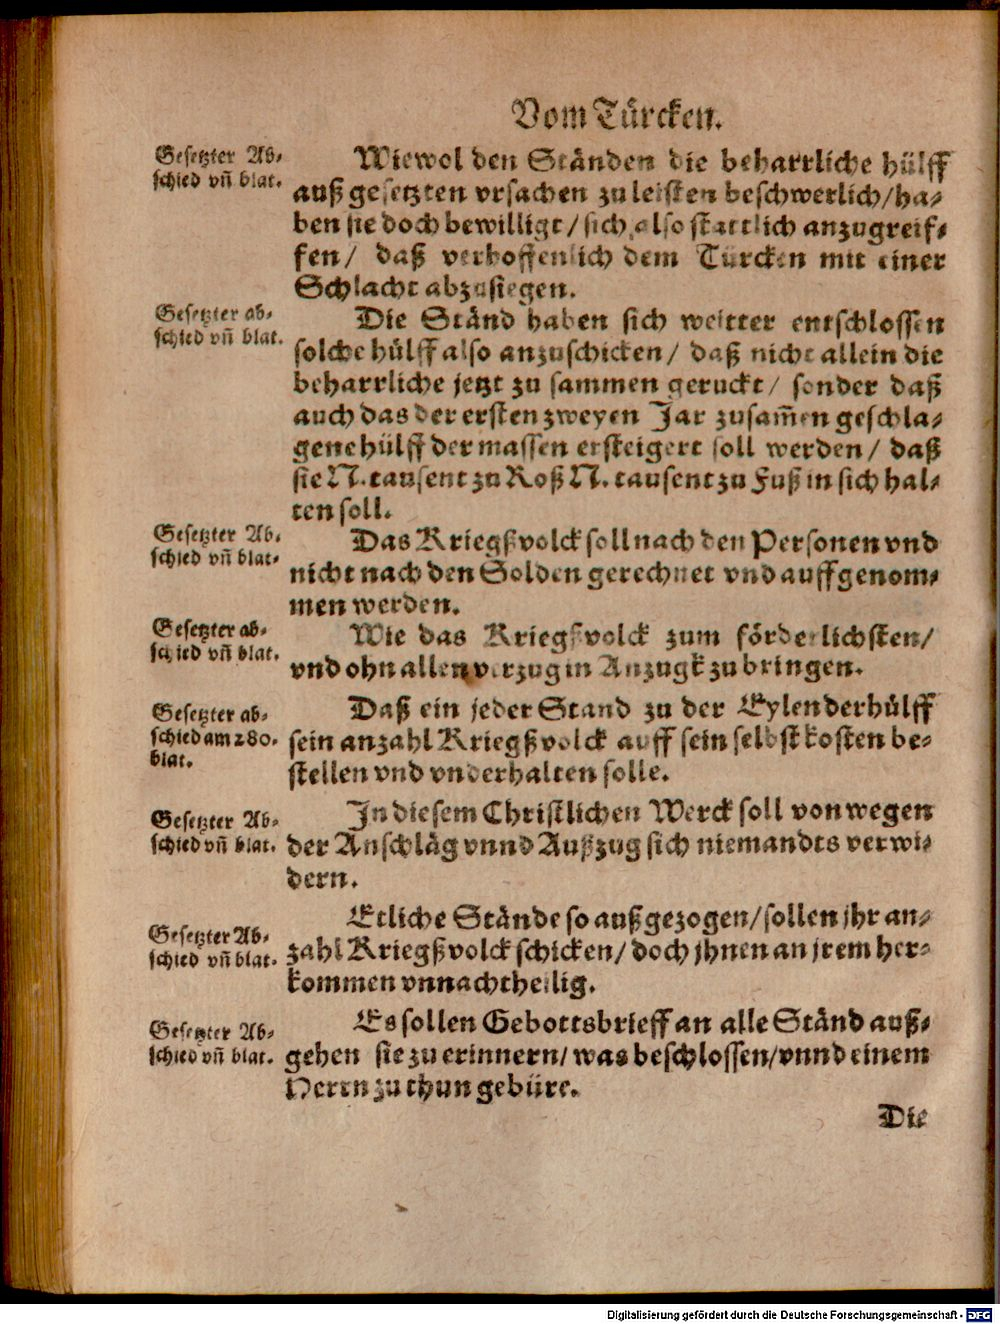 Vom Türcken.
Gesetzter Ab-
schied vñ blat.
Wiewol den Ständen die beharrliche hülff
auß gesetzten vrsachen zu leisten beschwerlich/ha-
ben sie doch bewilligt/sich also stattlich anzugreif-
fen/ daß verhoffenlich dem Türcken mit einer
Schlacht abzusiegen.
Gesetzter ab-
schied vñ blat.
Die Ständ haben sich weitter entschlossen
solche hülff also anzuschicken/ daß nicht allein die
beharrliche jetzt zu sammen geruckt/ sonder daß
auch das der ersten zweyen Jar zusam̃en geschla-
gene hülff der massen ersteigert soll werden/ daß
sie N. tausent zu Roß N. tausent zu Fuß in sich hal-
ten soll.
Gesetzter Ab-
schied vñ blat.
Das Kriegßvolck soll nach den Personen vnd
nicht nach den Solden gerechnet vnd auffgenom-
men werden.
Gesetzter ab-
schied vñ blat.
Wie das Kriegßvolck zum förderlichsten/
vnd ohn allen verzug in Anzugk zu bringen.
Gesetzter ab-
schied am 280.
blat.
Daß ein jeder Stand zu der Eylenderhülff
sein anzahl Kriegßvolck auff sein selbst kosten be-
stellen vnd vnderhalten solle.
Gesetzter Ab-
schied vñ blat.
In diesem Christlichen Werck soll von wegen
der Anschläg vnnd Außzug sich niemandts verwi-
dern.
Gesetzter Ab-
schied vñ blat.
Etliche Stände so außgezogen/sollen jhr an-
zahl Kriegßvolck schicken/doch jhnen an jrem her-
kommen vnnachtheilig.
Gesetzter Ab-
schied vñ blat.
Es sollen Gebottsbrieff an alle Ständ auß-
gehen sie zu erinnern/was beschlossen/vnnd einem
Herrn zu thun gebüre.
Die
Digitalisierung gefördert durch die Deutsche Forschungsgemeinschaft - DFG